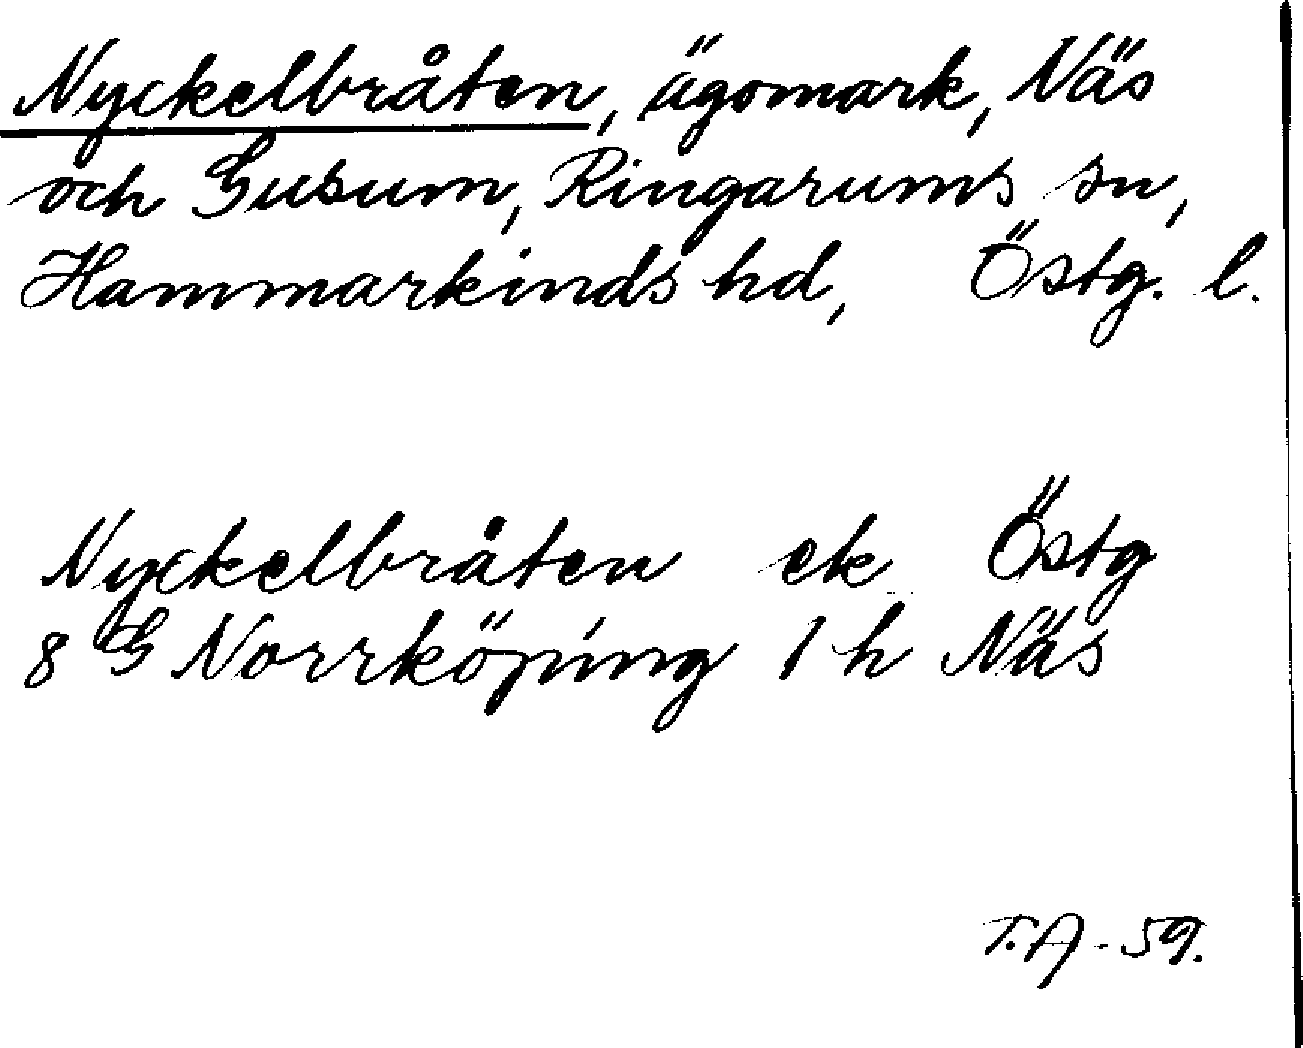 Nyckelbråten, ägomark, Näs
och Gusum, Ringarums sn,
Hammarkinds hd, Östg. l.
Nyckelbråten ek Östg
8 G Norrköping 1 h Näs
T.A-59.